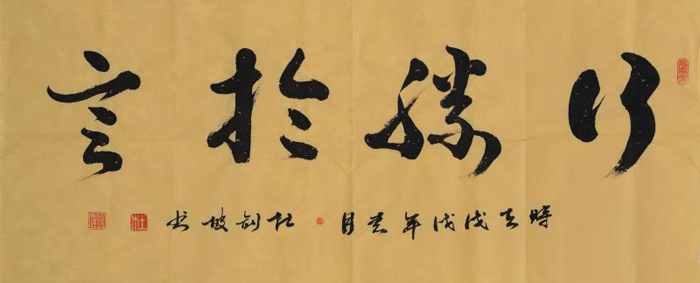 行勝於言
時在戊戌年春月杜剑坡书